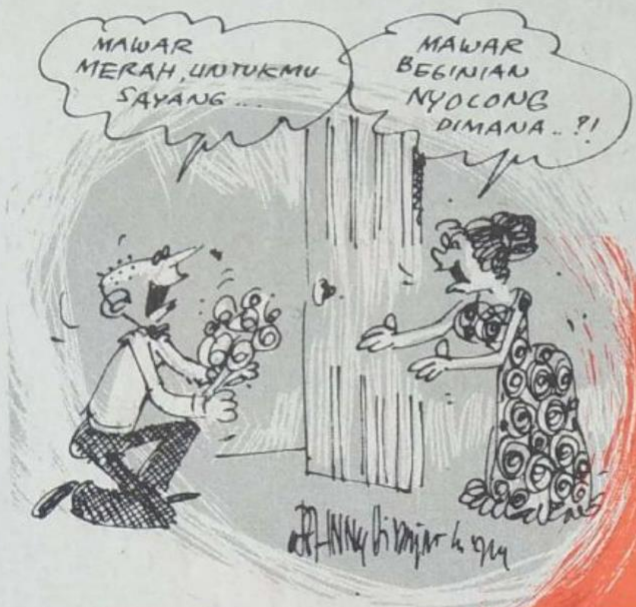 MAWAR
MERAH, UNTUKMU
SAYANG...
MAWAR
BEGINIAN
NYOLONG
DIMANA..?!